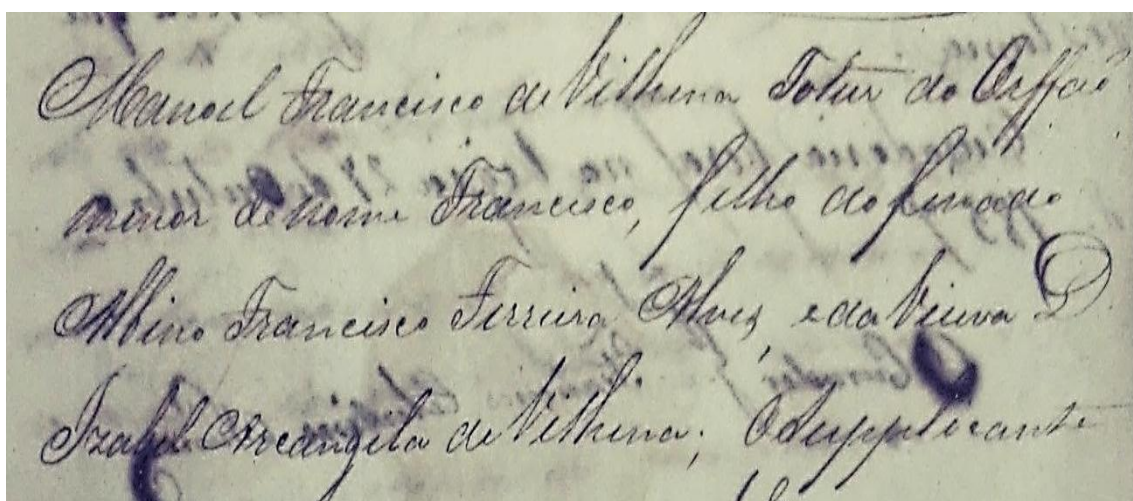 Manoel Francisco de Vilhena Totor do Orffaõ
menor de nome Francisco, filho do finado
Albino Francisco Ferreira Alves, e da Viuva D.
Izabel Arcangela de Vilhena; O Supplicante